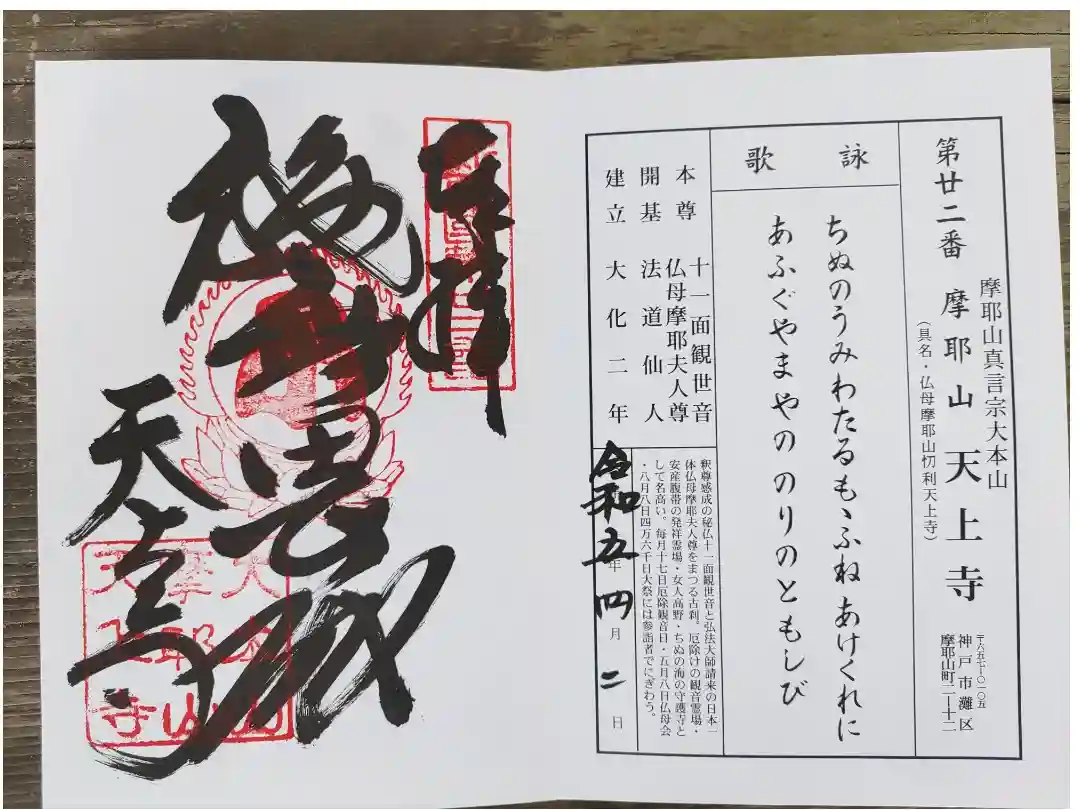 摩耶山真言宗大本山
第廿二番 摩耶山 天上寺
(具名・仏母摩耶山忉利天上寺)
〒六五七-〇一〇五
神戸市灘区
摩耶山町二-十二
詠歌
ちぬのうみわたるもゝふね あけくれに
あふぐやまやの のりのともしび
本尊 十一面観世音
仏母摩耶夫人尊
開基 法道仙人
建立 大化二年
釈尊感成の秘仏十一面観世音と弘法大師請来の日本一
体仏母摩耶夫人尊をまつる古刹。厄除けの観音霊場・
安産腹帯の発祥霊場・女人高野・ちぬの海の守護寺と
して名高い。毎月十七日厄除観音日・五月八日仏母会
・八月八日四万六千日大祭には参詣者でにぎわう。
令和五年四月二日
奉拝
天上寺
大本山
摩耶山
天上寺